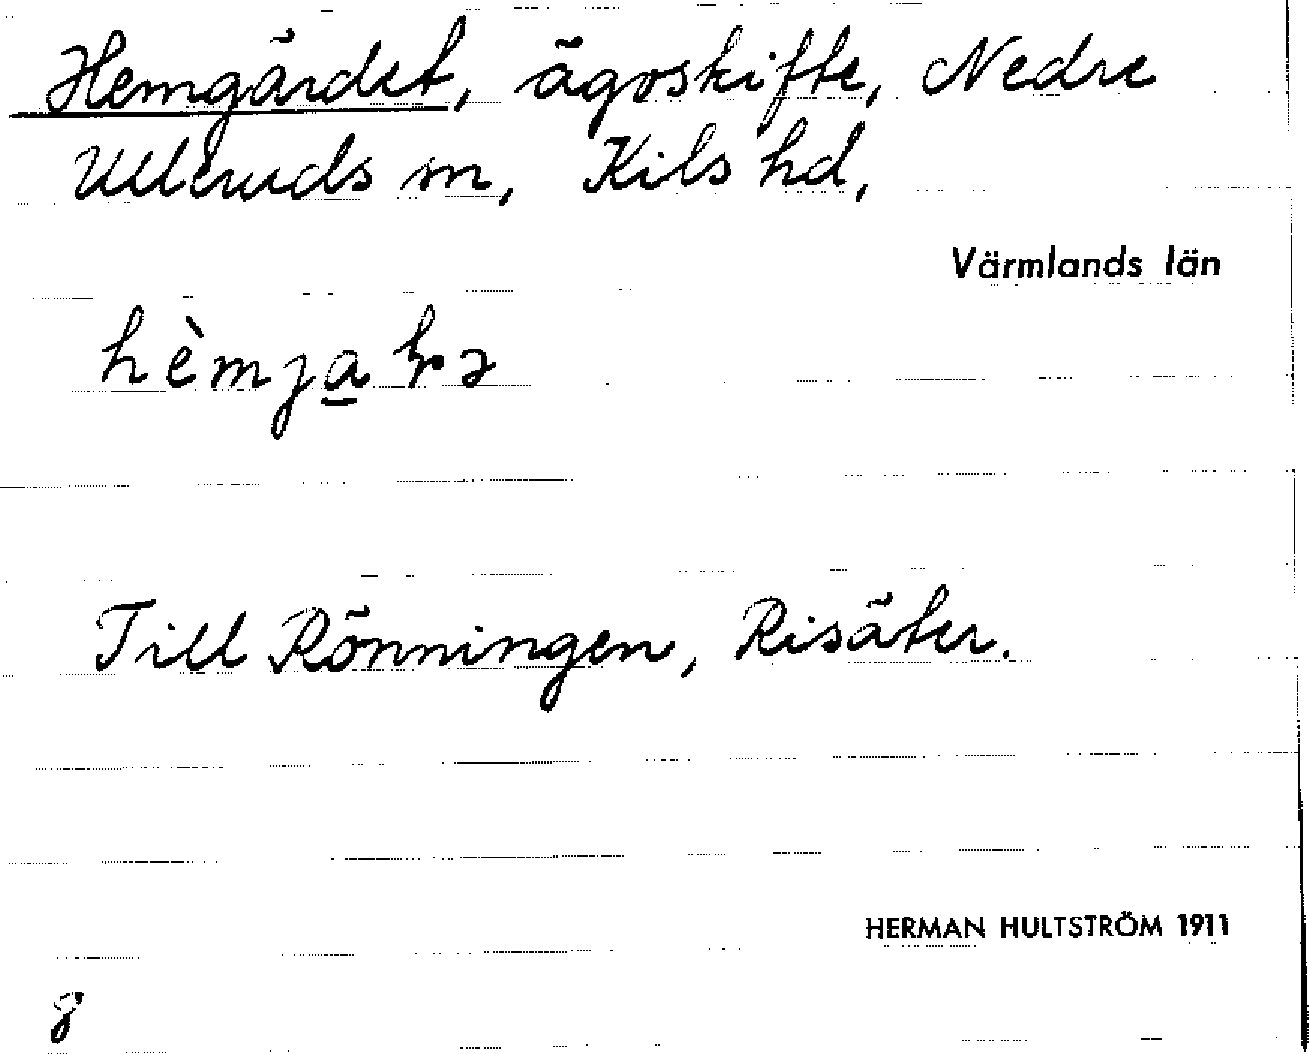 Hemgärdet, ägoskifte, Nedre
Ulleruds sn, Kils hd,
Värmlands län
Till Rönningen, Risäter.
HERMAN HULTSTRÖM 1911
8